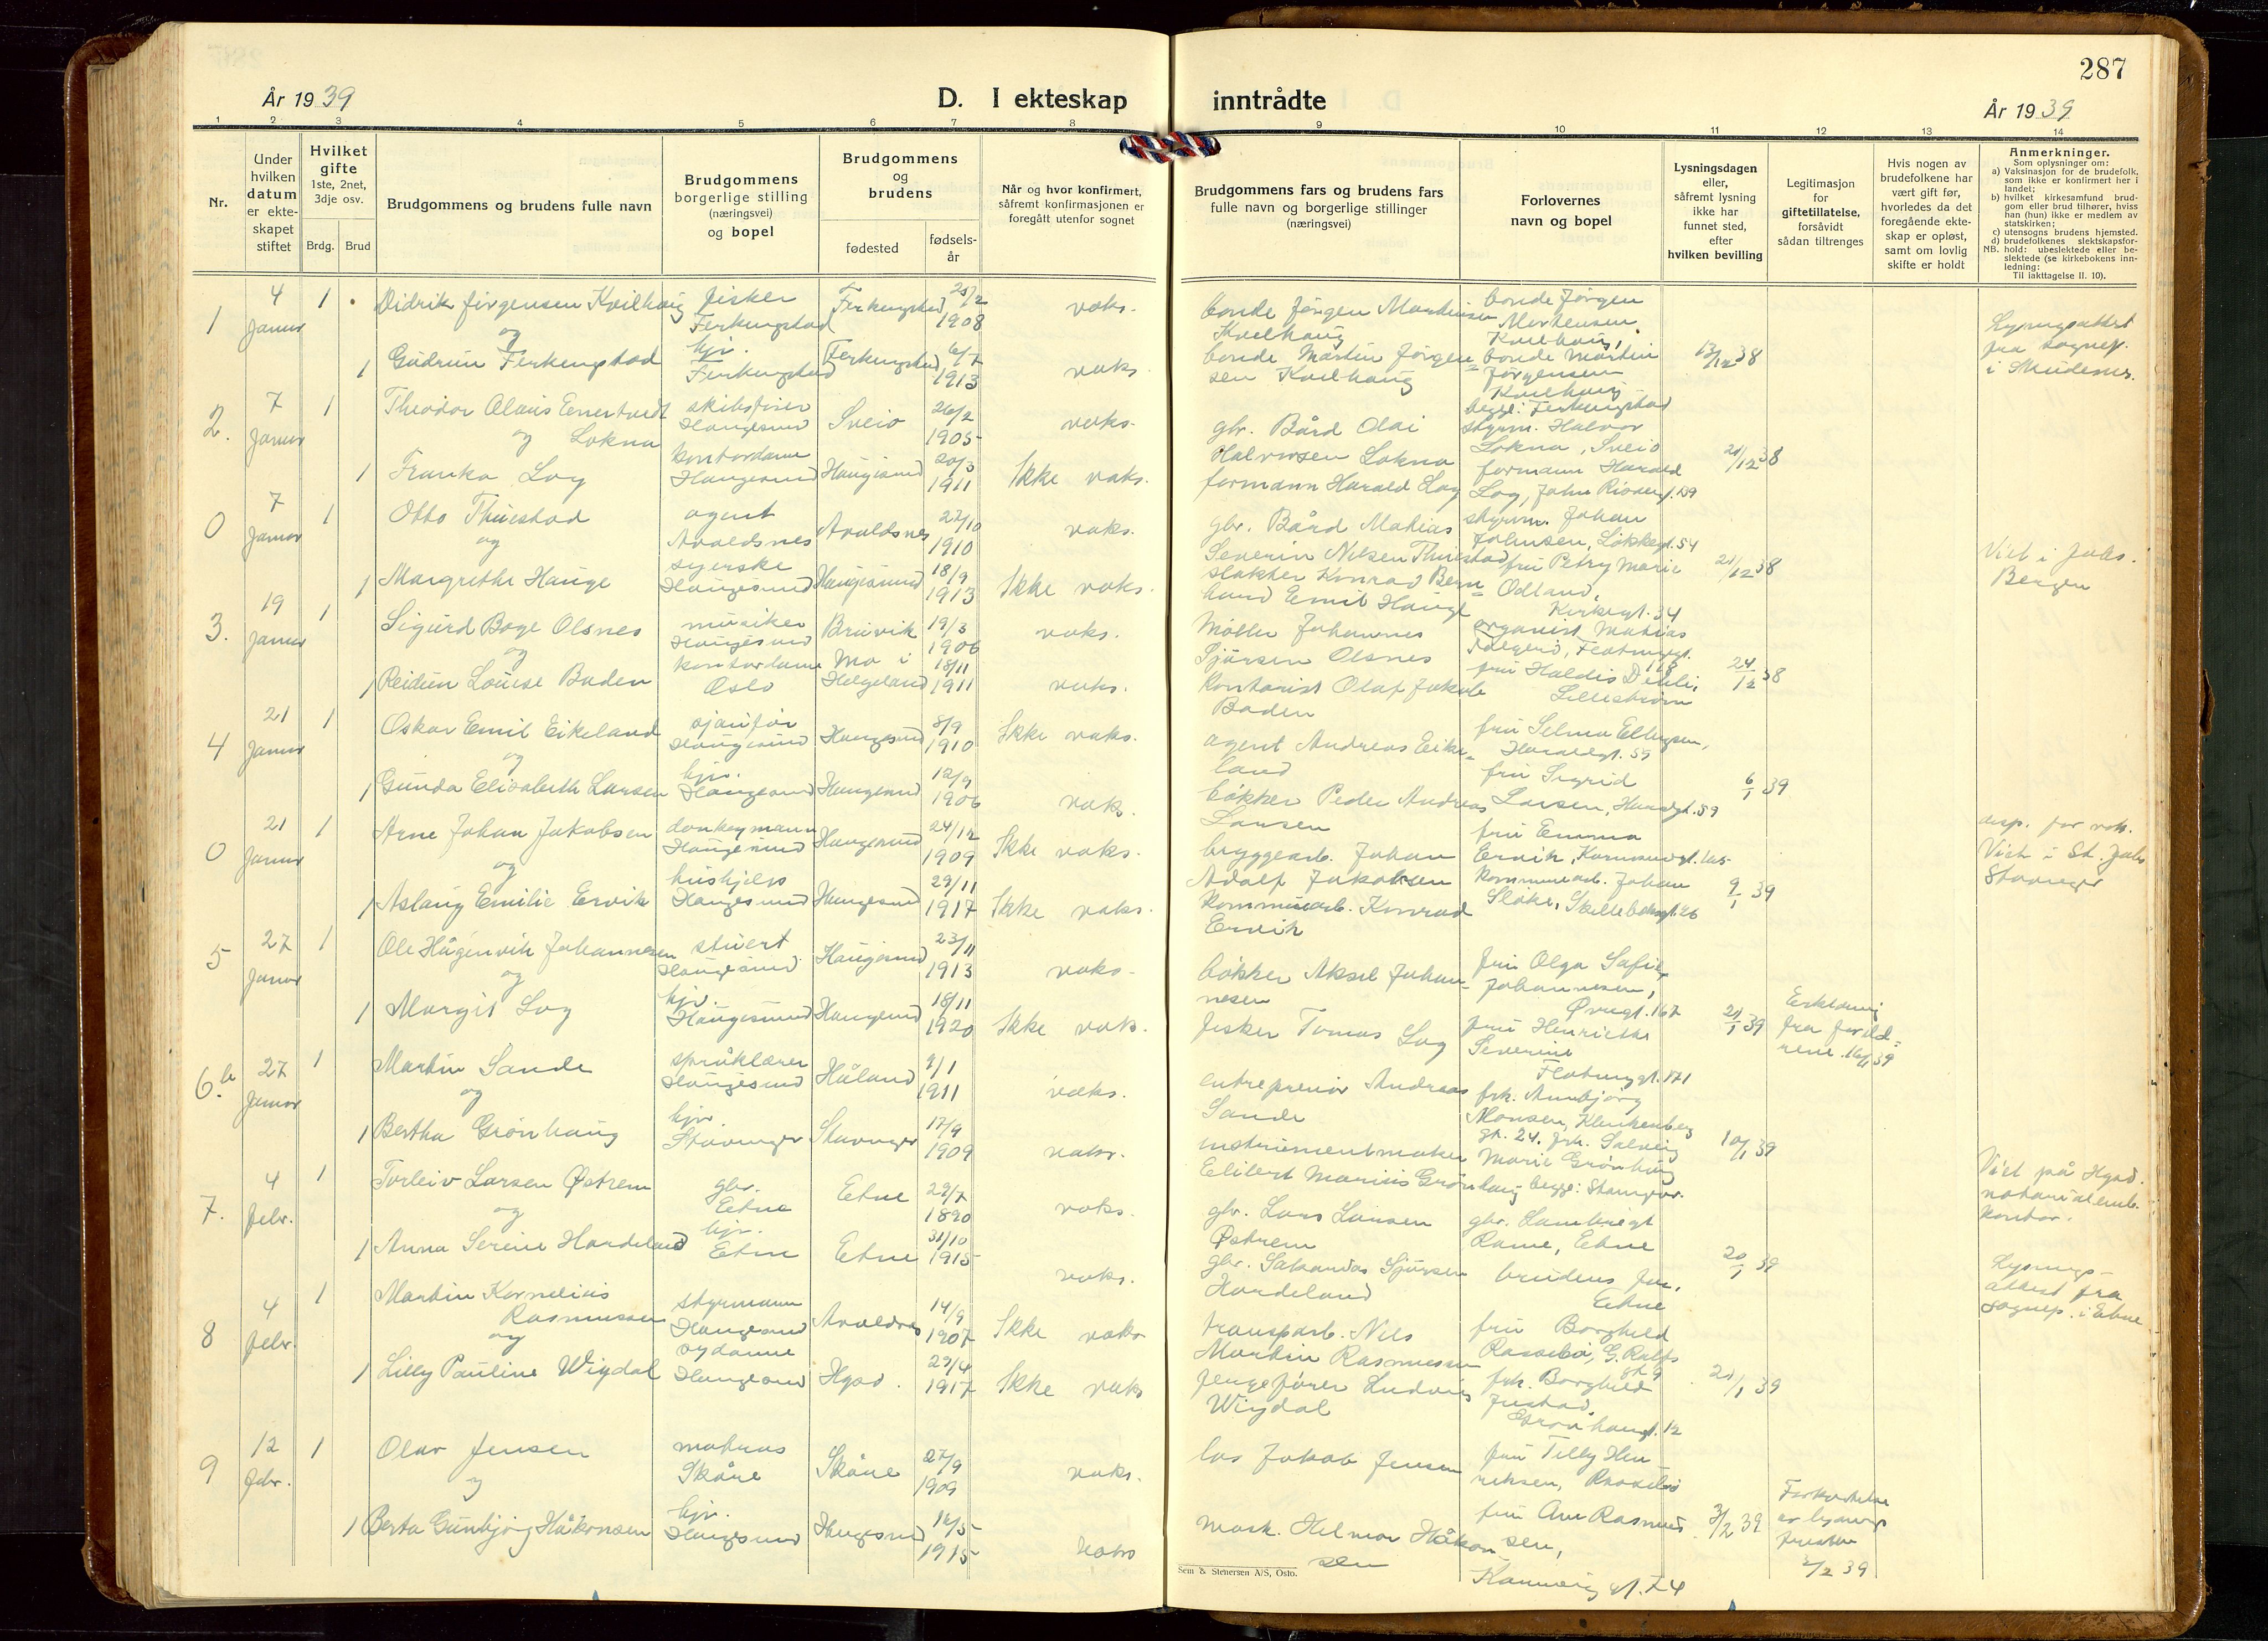 287
År 1939
D. I ekteskap inntrådte
År 1939
1 2 3 4 5 6 7 8 9 10 11 12 13 14
Nr.
Under hvilken datum er ekteskapet stiftet
Hvilket gifte
1ste, 2net, 3dje osv.
Brdg. Brud
Brudgommens og brudens fulle navn
Brudgommens borgerlige stilling (næringsvei) og bopel
Brudgommens og brudens
fødested
fødselsår
Når og hvor konfirmert, såfremt konfirmasjonen er foregått utenfor sognet
Brudgommens fars og brudens fars fulle navn og borgerlige stillinger (næringsvei)
Forlovernes navn og bopel
Lysningsdagen eller, såfremt lysning ikke har funnet sted, efter hvilken bevilling
Legitimasjon for giftetillatelse, forsåvidt sådan tiltrenges
Hvis nogen av brudefolkene har vært gift før, hvorledes da det foregående ekteskap er opløst, samt om lovlig skifte er holdt
Anmerkninger.
Som oplysninger om:
a) Vaksinasjon for de brudefolk, som ikke er konfirmert her i landet;
b) hvilket kirkesamfund brudgom eller brud tilhører, hviss han (hun) ikke er medlem av statskirken;
c) utensogns brudens hjemsted.
d) brudefolkenes slektskapsforhold: ubeslektede eller beslektede (se kirkebokens innledning:
NB. Til iakttagelse II. 10).
1 4 Januar 1 Didrik Jørgensen Kvilhaug fisker Ferkingstad Ferkingstad 1908 vaks. bonde Jørgen Mortensen Kvilhaug bonde Jørgen Mortensen Kvilhaug,
og
1 Gudrun Ferkingstad hjv. Ferkingstad Ferkingstad 6/7 1913 vaks bonde Martin Jørgensen Kvilhaug bonde Martin Jørgensen Kvilhaug begge: Ferkingstad 13/12 38 Lysningsattest fra sognep. i Skudenes.
2. 7 Januar 1 Theodor Olaus Lokna skibsfører Haugesund Sveio 26/2 1905 vaks. gbr. Bård Olai Halvorsen Lokna styrm. Halvor Lokna, Sveio
og
1 Franka Log kontordame Haugesund Haugesund 20/3 1911 Ikke vaks. formann Harald Log formann Harald Log 21/12 38
0 7 Januar 1 Otto Thuestad agent Avaldsnes Avaldsnes 27/10 1910 vaks. gbr. Bård Mathias Severin Nilsen Thuestad styrm. Johan Johnsen, Løkkegt. 54
og
1 Margrethe Hauge syerske Haugesund Haugesund 18/9 1913 Ikke vaks. slakter Konrad Bernhard Emil Hauge fru Petry Marie Odland, Kirkegt. 34 21/12 38 Viet i Johs. Bergen
3. 19 Januar 1 Sigurd Boge Olsnes musiker Haugesund Bruvik 19/3 1906 vaks. Møller Johannes Sjursen Olsnes organist Mathias
og
1 Reidun Louise Baden kontordame Oslo Mo i Helgeland 18/11 1911 vaks. kontorist Olaf Jakob Baden fru Haldis Dehli, Lillestrøm 24/12 38
4 21 Januar 1 Oskar Emil Eikeland sjaufør Haugesund Haugesund 8/9 1910 Ikke vaks. agent Andreas Eikeland fru Selma Ellingsen, Haraldgt. 55
og
1 Gunda Elisabeth Larsen hjv. Haugesund Haugesund 12/9 1906 vaks. bøkker Peder Andreas Larsen fru Sigrid Larsen, 6/1 39
0 21 Januar 1 Arne Johan Jakobsen donkeymann Haugesund Haugesund 24/12 1909 Ikke vaks. bryggearb. Johan Adolf Jakobsen fru Emma Ervik, disp. for vaks. Viet i St. Johs Stavanger
og
1 Aslaug Emilie Ervik hushjelp Haugesund Haugesund 29/11 1917 Ikke vaks. kommunearb. Konrad Ervik kommunearb. Johan 9/1 39
5 27 Januar 1 Ole Hågenvik Johannesen stuert Haugesund Haugesund 23/11 1913 vaks. bøkker Aksel Johannesen fru Olga Sofie Johannesen, Øvregt. 167
og
1 Margit Log hjv. Haugesund Haugesund 18/11 1920 Ikke vaks. fisker Tomas Log fru Henriette Severine Flotmyrgt. 171 21/1 39 Erklæring fra foreldrene. 39
6. 27 Januar 1 Martin Sande språklærer Haugesund Håland 1911 vaks. entreprenør Andreas Sande frk. Annbjørg Monsen, gt. 24.
og
1 Bertha Grønhaug hjv. Stavanger Stavanger 17/9 1909 vaks. instrumentmaker Elibert Marius Grønhaug frk. Solveig Marie Grønhaug begge: Stavanger. 10/1 39 Viet på Hgsd. notarialemb. kontor.
7. 4 Febr. 1 Torleiv Larsen Østrem gbr. Etne Etne 29/7 1890 vaks. gbr. Lars Larsen Østrem gbr. Lambrigt Rame, Etne
og
1 Anna Serine Hardeland hjv. Etne Etne 31/10 1915 vaks. gbr. Sjursen Hardeland brudens far, Etne 20/1 39 Lysningsattest fra sognep. i Etne
8 4 Febr. 1 Martin Kornelius Rasmussen styrmann Haugesund Avaldsnes 14/9 1907 Ikke vaks transparb. Nils Martin Rasmussen fru Borghild
og
1 Lilly Pauline Wigdal sydame Haugesund Hgsd. 29/4 1917 Ikke vaks Ludvig Wigdal frk. Borghild Grønhaugt. 12 21/1 39
9 12 Febr. 1 Olav Jensen matros Skåre Skåre 27/9 1909 vaks. los Jakob Jensen fru Tilly Henriksen,
og
1 Berta Gunbjørg Håkonsen hjv. Haugesund Haugesund 16/5 1915 vaks mask. Helmar Håkonsen fru Rasmussen, 3/2 39 2/2 39
Sem & Stenersen A/S, Oslo.